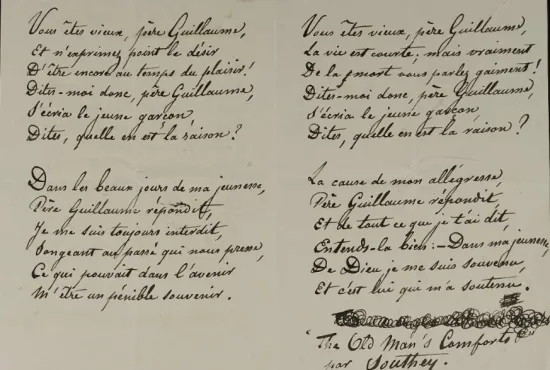 Vous êtes vieux, père Guillaume,
Et n'exprimez point le désir
D'être encore au temps du plaisir!
Dites-moi donc, père Guillaume,
S'écria le jeune garçon,
Dites, quelle en est la raison?
Dans les beaux jours de ma jeunesse,
Père Guillaume répondit,
Je me suis toujours interdit,
Songeant au passé qui nous presse,
Ce qui pouvait dans l'avenir
M'être un pénible souvenir.
Vous êtes vieux, père Guillaume,
La vie est courte; mais vraiment
De la mort vous parlez gaiment!
Dites-moi donc, père Guillaume,
S'écria le jeune garçon
Dites, quelle en est la raison?
La cause de mon allégresse,
Père Guillaume répondit,
Et de tout ce que je t'ai dit,
Entends-la bien:—Dans ma jeunesse,
De Dieu je me suis souvenu,
Et c'est lui qui m'a soutenu.
"The Old Man's Comforts"
par Southey.